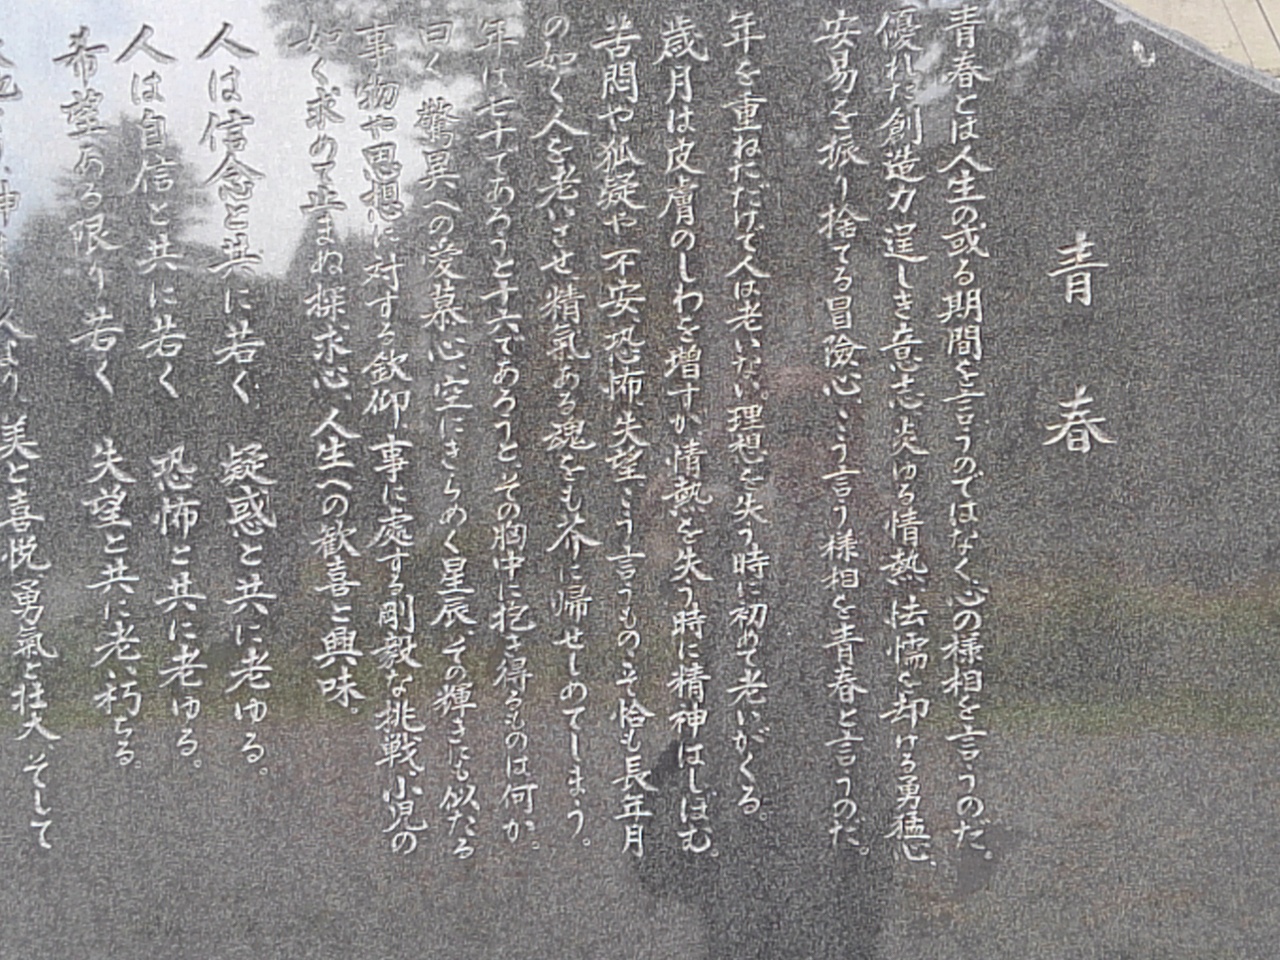 青春
青春とは人生の或る期間を言うのではなく、心の様相を言うのだ。
優れた創造力、逞しき意志、炎ゆる情熱、怯懦を却ける勇猛心、
安易を振り捨てる冒険心、こう言う様相を青春と言うのだ。
年を重ねただけで人は老いない。理想を失う時に初めて老いがくる。
歳月は皮膚のしわを増すが情熱を失う時に精神はしぼむ。
苦悶や狐疑や不安、恐怖、失望、こう言うものこそ恰も長年月
の如く人を老いさせ、精氣ある魂をも芥に帰せしめてしまう。
年は七十であろうと十六であろうと、その胸中に抱き得るものは何か。
曰く驚異への愛慕心、空にきらめく星辰、その輝きにも似たる
事物や思想に対する欽仰、事に處する剛毅な挑戦、小児の
如く求めて止まぬ探求心、人生への歓喜と興味。
人は信念と共に若く 疑惑と共に老ゆる。
人は自信と共に若く 恐怖と共に老ゆる。
希望ある限り若く 失望と共に老い朽ちる。
人より 美と喜悦、勇氣と壮大、そして